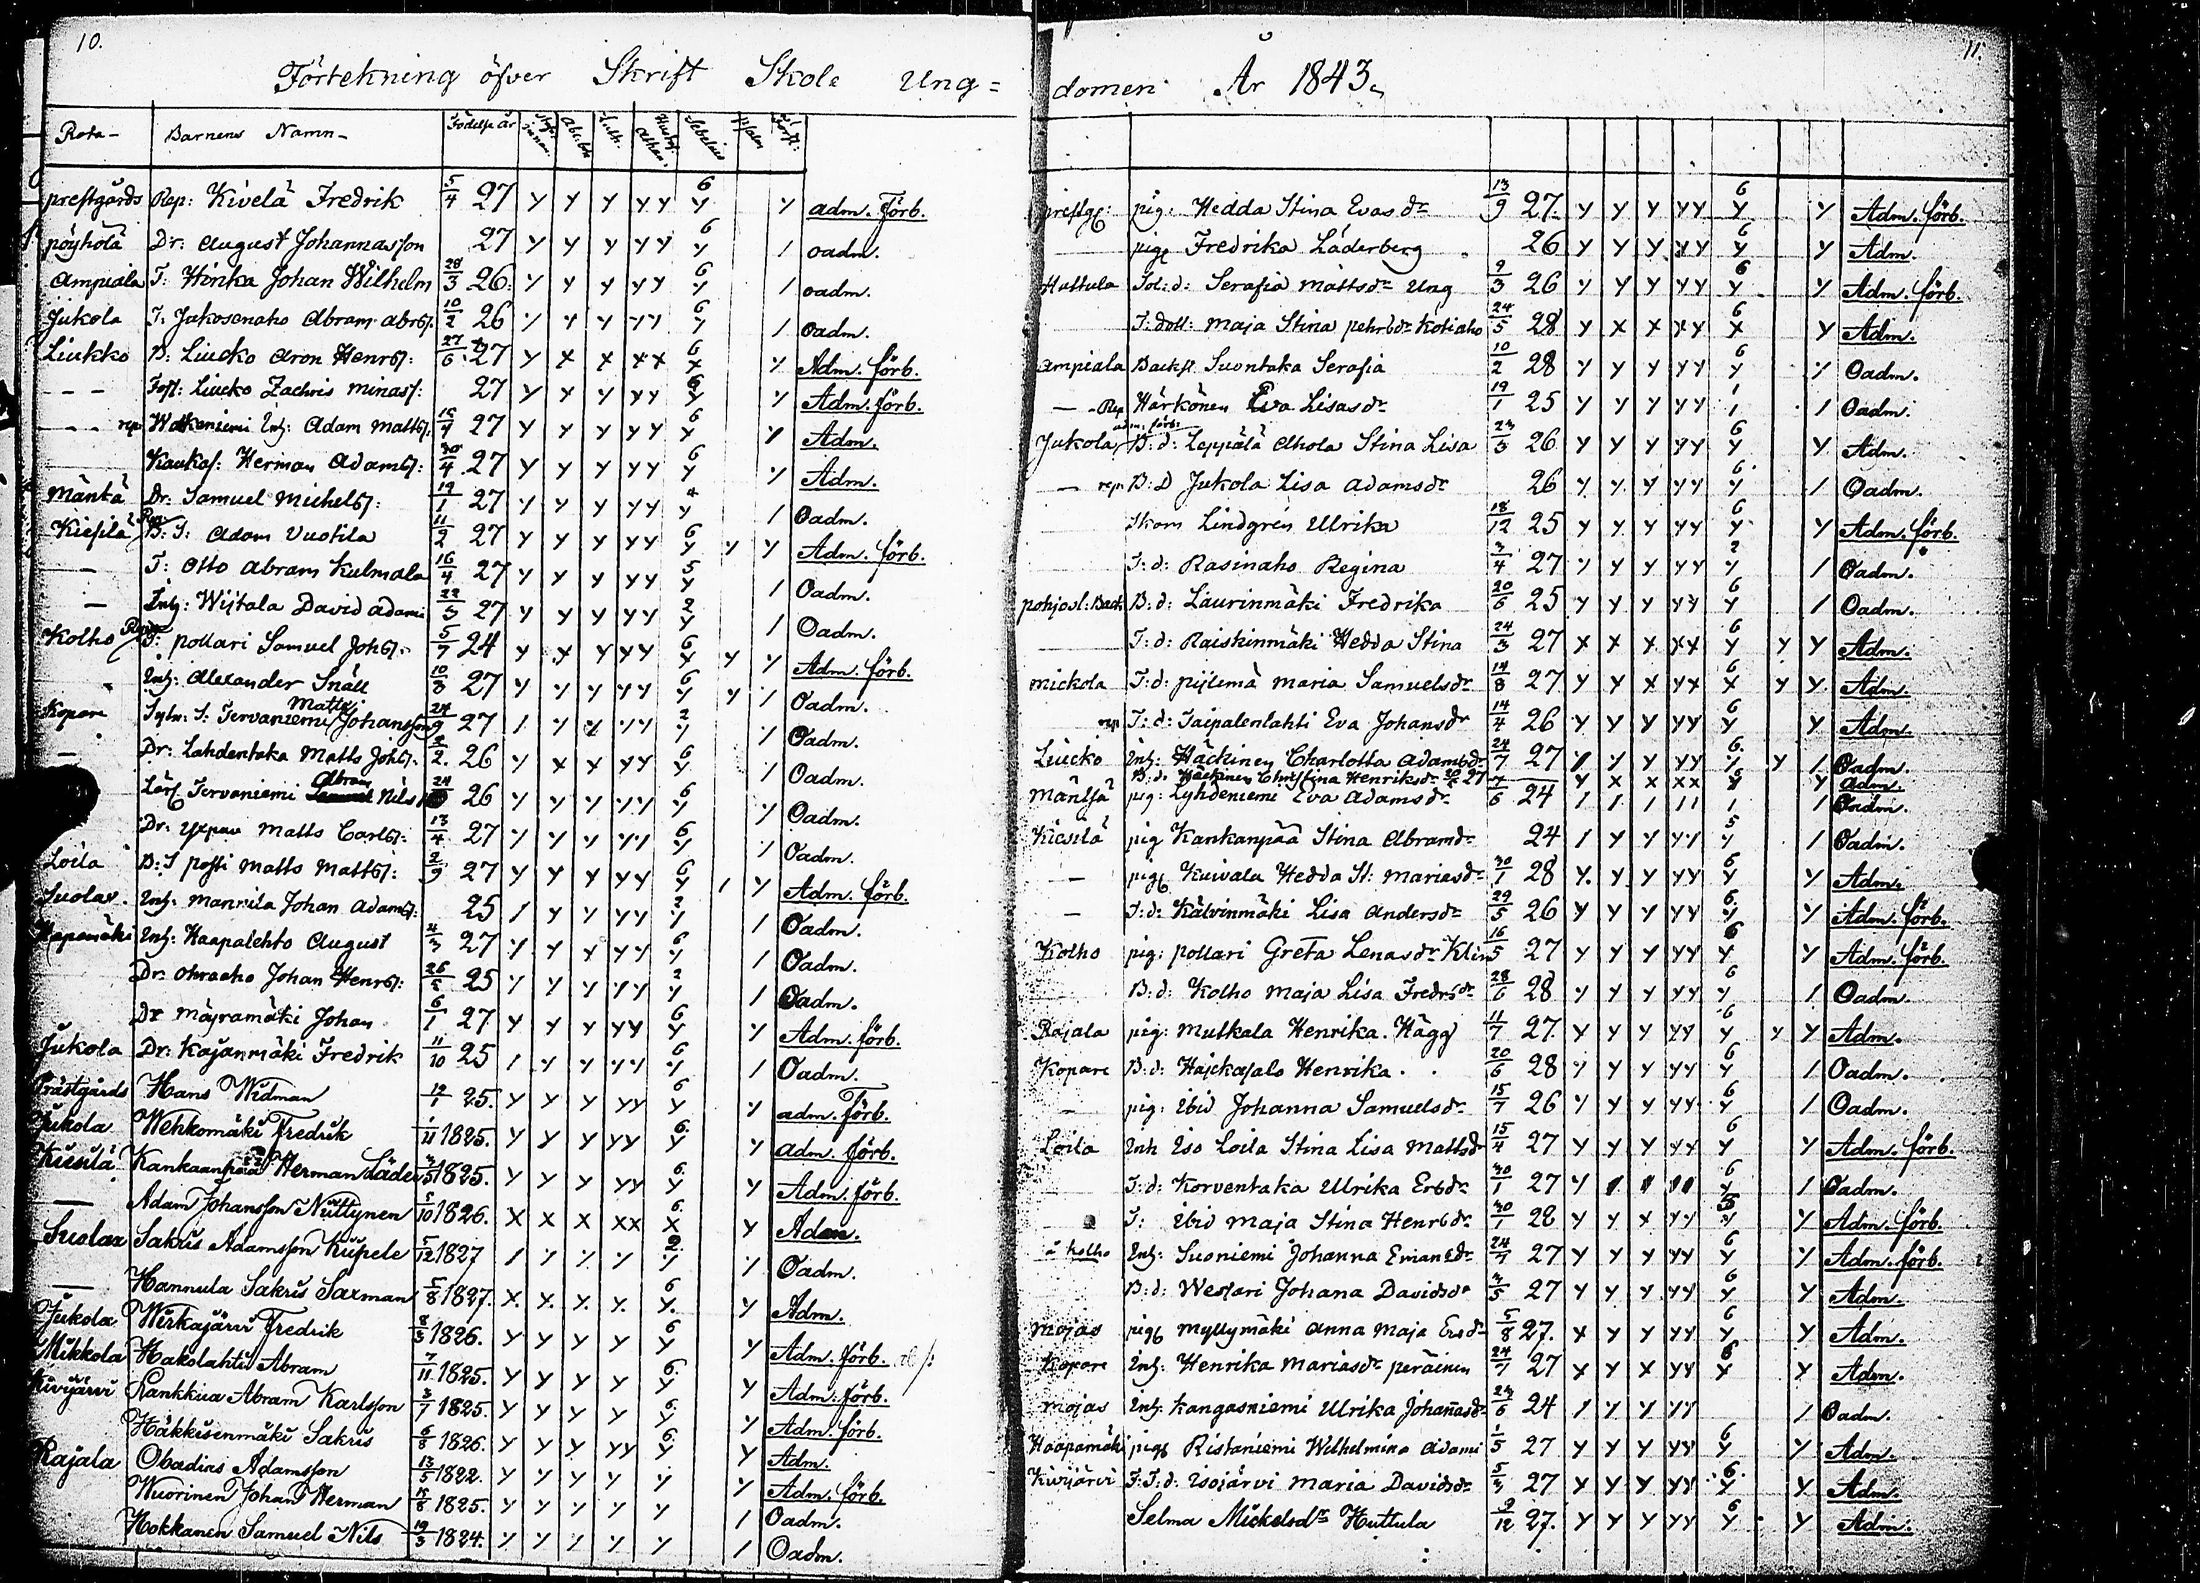 10.
Förtekning öfver Skrift Skole Ung=
Rota- Barnens Namn- Födelse år Abc.bok Luth. Hust. Athan. Sebelius Psalm Förs:
prestgårds Rep: Kivelä Fredrik 5/4 27 y y y yy 6 y y adm. Förb.
pöyhölä Dr: August Johannasson 27 y y y yy 6 y / oadm.
Ampiala T: Hörika Johan Wilhelm 28/3 26 y y y yy 6 y / oadm.
Jukola T: Jakosenaho Abram Abrss. 10/2 26 y y y yy 6 y / oadm.
Liukko B: Liucko Aron Henrss: 27/6 27 y x x xx 6 x y Adm. förb.
- - Fost: Liucko Zachris Minass: 27 y x y yy 6 y y Adm. förb.
- - rep Inh: Adam Mattss. 27 y y y yy 6 y y Adm.
Kaukas: Herman Adamss: 30/4 27 y y y yy 6 y y Adm.
Mäntä Dr: Samuel Michelss: 19/1 27 y y y yy 4 y / Oadm.
Kiesilä Rep B: S: Adam Vuotila 11/2 27 y y y yy 6 y y y Adm. förb.
- T: Otto Abram Kulmala 16/4 27 y y y yy 5 y / Oadm.
- Inh: Wijtala David Adami 22/3 27 y y y yy 2 y / Oadm.
Kolho T: pollari Samuel Johss. 5/7 24 y y y yy 6 y y y Adm. förb.
Inh: Alexander Snäll 10/3 27 y y y yy 6 y y / Oadm.
Kopare Sytn: S: Tervaniemi Matts Johansson 24/9 27 / y y yy 2 y y Oadm.
- Dr: Lahdentaka Matts Johss. 2/2 26 y x x yy 6 y / Oadm.
Lärl Tervaniemi Abram Nils 24 26 y y y yy 6 y y Oadm.
Dr: Matts Carlss: 13/4 27 y y y yy 6 y / Oadm.
Loila B: S posti Matts Mattss: 2/9 27 y y y yy 6 y / y Adm. förb.
Suolax. Inh. Mannila Johan Adamss: 25 / y y yy 2 y / Oadm.
Hapamäki Inh: Haapalehto August 4/3 27 y y y yy 6 y / Oadm.
Dr: Ohraaho Johan Henrss: 26/5 25 y y y yy 2 y / Oadm.
Dr Mäyramäki Johan 6/1 27 y y y yy 6 y y Adm. förb.
Jukola Dr: Kajanmäki Fredrik 11/10 25 / y y yy 6 y / Oadm.
Prästgårds Hans Widman 12/1 25. y y y yy 6 y y adm. förb.
Jukola Wehkomäki Fredrik 1/11 1825. y y y yy 6. y y adm. förb.
Kiesilä Kankaanpää Herman Läder 3/5 1825. y y y yy 6. y y Adm. förb.
- Adam Johansson Nuttynen 5/10 1826. x x x xx 6. x y Adm.
Suolax Sakris Adamsson Küpele 5/12 1827 / y y y 2 y / Oadm.
- Hannula Sakris Saxman 5/8 1827. x. x. y. y. 6 y. y Adm.
Jukola Wirkajärvi Fredrik 8/3 1826. y y y y 6 y y Adm. förb.
Mikkola Hakolahti Abram 7/11 1825. y y y y 6. y y Adm. förb.
Kivijärvi Rankkua Abram Karlsson 3/7 1825. y y y y 6. y y Adm. förb.
Häkkisenmäki Sakris 6/8 1826. y y y yy 6. y y Adm.
Rajala Obadias Adamsson 13/5 1822. y y y y y y Adm. förb.
Wuorinen Johan Herman 15/8 1825. y y y y y / Oadm.
Hokkanen Samuel Nils 19/3 1824. y y y y y / Oadm.
11.
domen År 1843.
prestgs: pig: Hedda Stina Evas dr 13/9 27. y y y yy 6 y y Adm. förb.
pigs Fredrika Läderberg 26 y y y yy 6 y y Adm.
Huttula Sol: d: Serafia Mattsdr Ung 9/3 26 y y y yy 6 y y Adm. förb.
T: dott: Maja Stina pehrsdr Kotiaho 24/5 28 y x x xy 6 x y Adm.
Ampiala Backst Suontaka Serafia 10/2 28 y y y yy 6 y y Oadm.
- - Rep Härkönen Eva Lisasdr 19/1 25 y y y yy 1 / / Oadm.
adm. förb:
Jukola B: d: Leppälä Ahola Stina Lisa 23/3 26 y y y yy 6 y y Adm.
- rep B: D Jukola Lisa Adamsdr 26 y y y yy 6 y / Oadm.
Skom Lindgrén Ulrika 18/12 25 y y y yy 6 y y Adm. förb.
T: d: Rasinaho Regina 3/4 27 y y y yy 2 y / Oadm.
pohjosl: Back B: d: Laurinmäki Fredrika 20/6 25 y y y yy 6 y / Oadm.
T: d: Raiskinmäki Hedda Stina 24/3 27 x x x xx 6 y y y Adm.
Mickola T: d: pijlemä Maria Samuelsdr 14/8 27 y y x yx 6 x y y Adm.
rep T: d: Taipalenlahti Eva Johansdr 14/4 26 y y y yy 6 y y Adm.
Liucko Inh: Häckinen Charlotta Adamsdr 24/7 27 y y y yy 6. y y / Oadm.
B: d: Häckinen Christina Henriksdr 27 y x x xx 6 y y Adm.
Mäntsä pig: Lyhdeniemi Eva Adamsdr 7/6 24 / / / // / / Oadm.
Kiesilä pig Kankanpää Stina Abramdr 24 / y y yy 5 y / Oadm.
- pigs Kuivala Hedda St: Mariasdr 30/1 28 y. y y yy 6 y y Adm.
- T: d: Kälvinmäki Lisa Andersdr 29/5 26 y y y yy 6 y y Adm. förb.
Kolho pig: pollari Greta Lenasdr Klin 16/5 27 y y y yy 6 y y Adm. förb.
B: d: Kolho Maja Lisa Fredrsdr 28/6 28 y y y yy 6 y / Oadm.
Rajala pig: Mutkala Henrika. Hägg 11/7 27. y y y yy 6 y y y Adm.
Kopare B: d: Häyckäsalo Henrika 20/6 28 y y y yy 6 y / Oadm.
- pig: ibid Johanna Samuelsdr 15/7 26 y y y yy 6 y / Oadm.
Loila Inh Iso Loila Stina Lisa Mattsdr 15/4 27 y y y yy 6 y y Adm. förb.
T: d: Korventaka Ulrika Ersdr 30/1 27 y 6 y / Oadm.
T: ibid Maja Stina Henrsdr 30/1 28 y y x yy 5 y y Adm. förb.
à Kolho Inh: Suoniemi Johanna Emansdr 24/7 27 y y y yy 6 y y Adm. förb.
B: d: Westari Johana Davidsdr 3/5 27 y y y yy 6 y y Adm.
Mojas pigs Myllymäki Anna Maja Ersdr 5/8 27. x y y yy 6 y y Adm.
Kopare Inh: Henrika Mariasdr peräinen 24/7 27 x y x yx 6 x y Adm.
Mojas Inh. Kangasniemi Ulrika Johanasdr 23/6 24 / y y yy / Oadm.
Haapamäki pigs Ristaniemi Wilhelmina Adami 1/5 27 y y y yy 6 y y Adm.
Kivijärvi F: T: d: Isojärvi Maria Davidsdr 5/3 27 y y y yy 6. y y Adm.
Selma Mickelsdr Huttula 9/12 27. y y y yy 6 y y Adm.